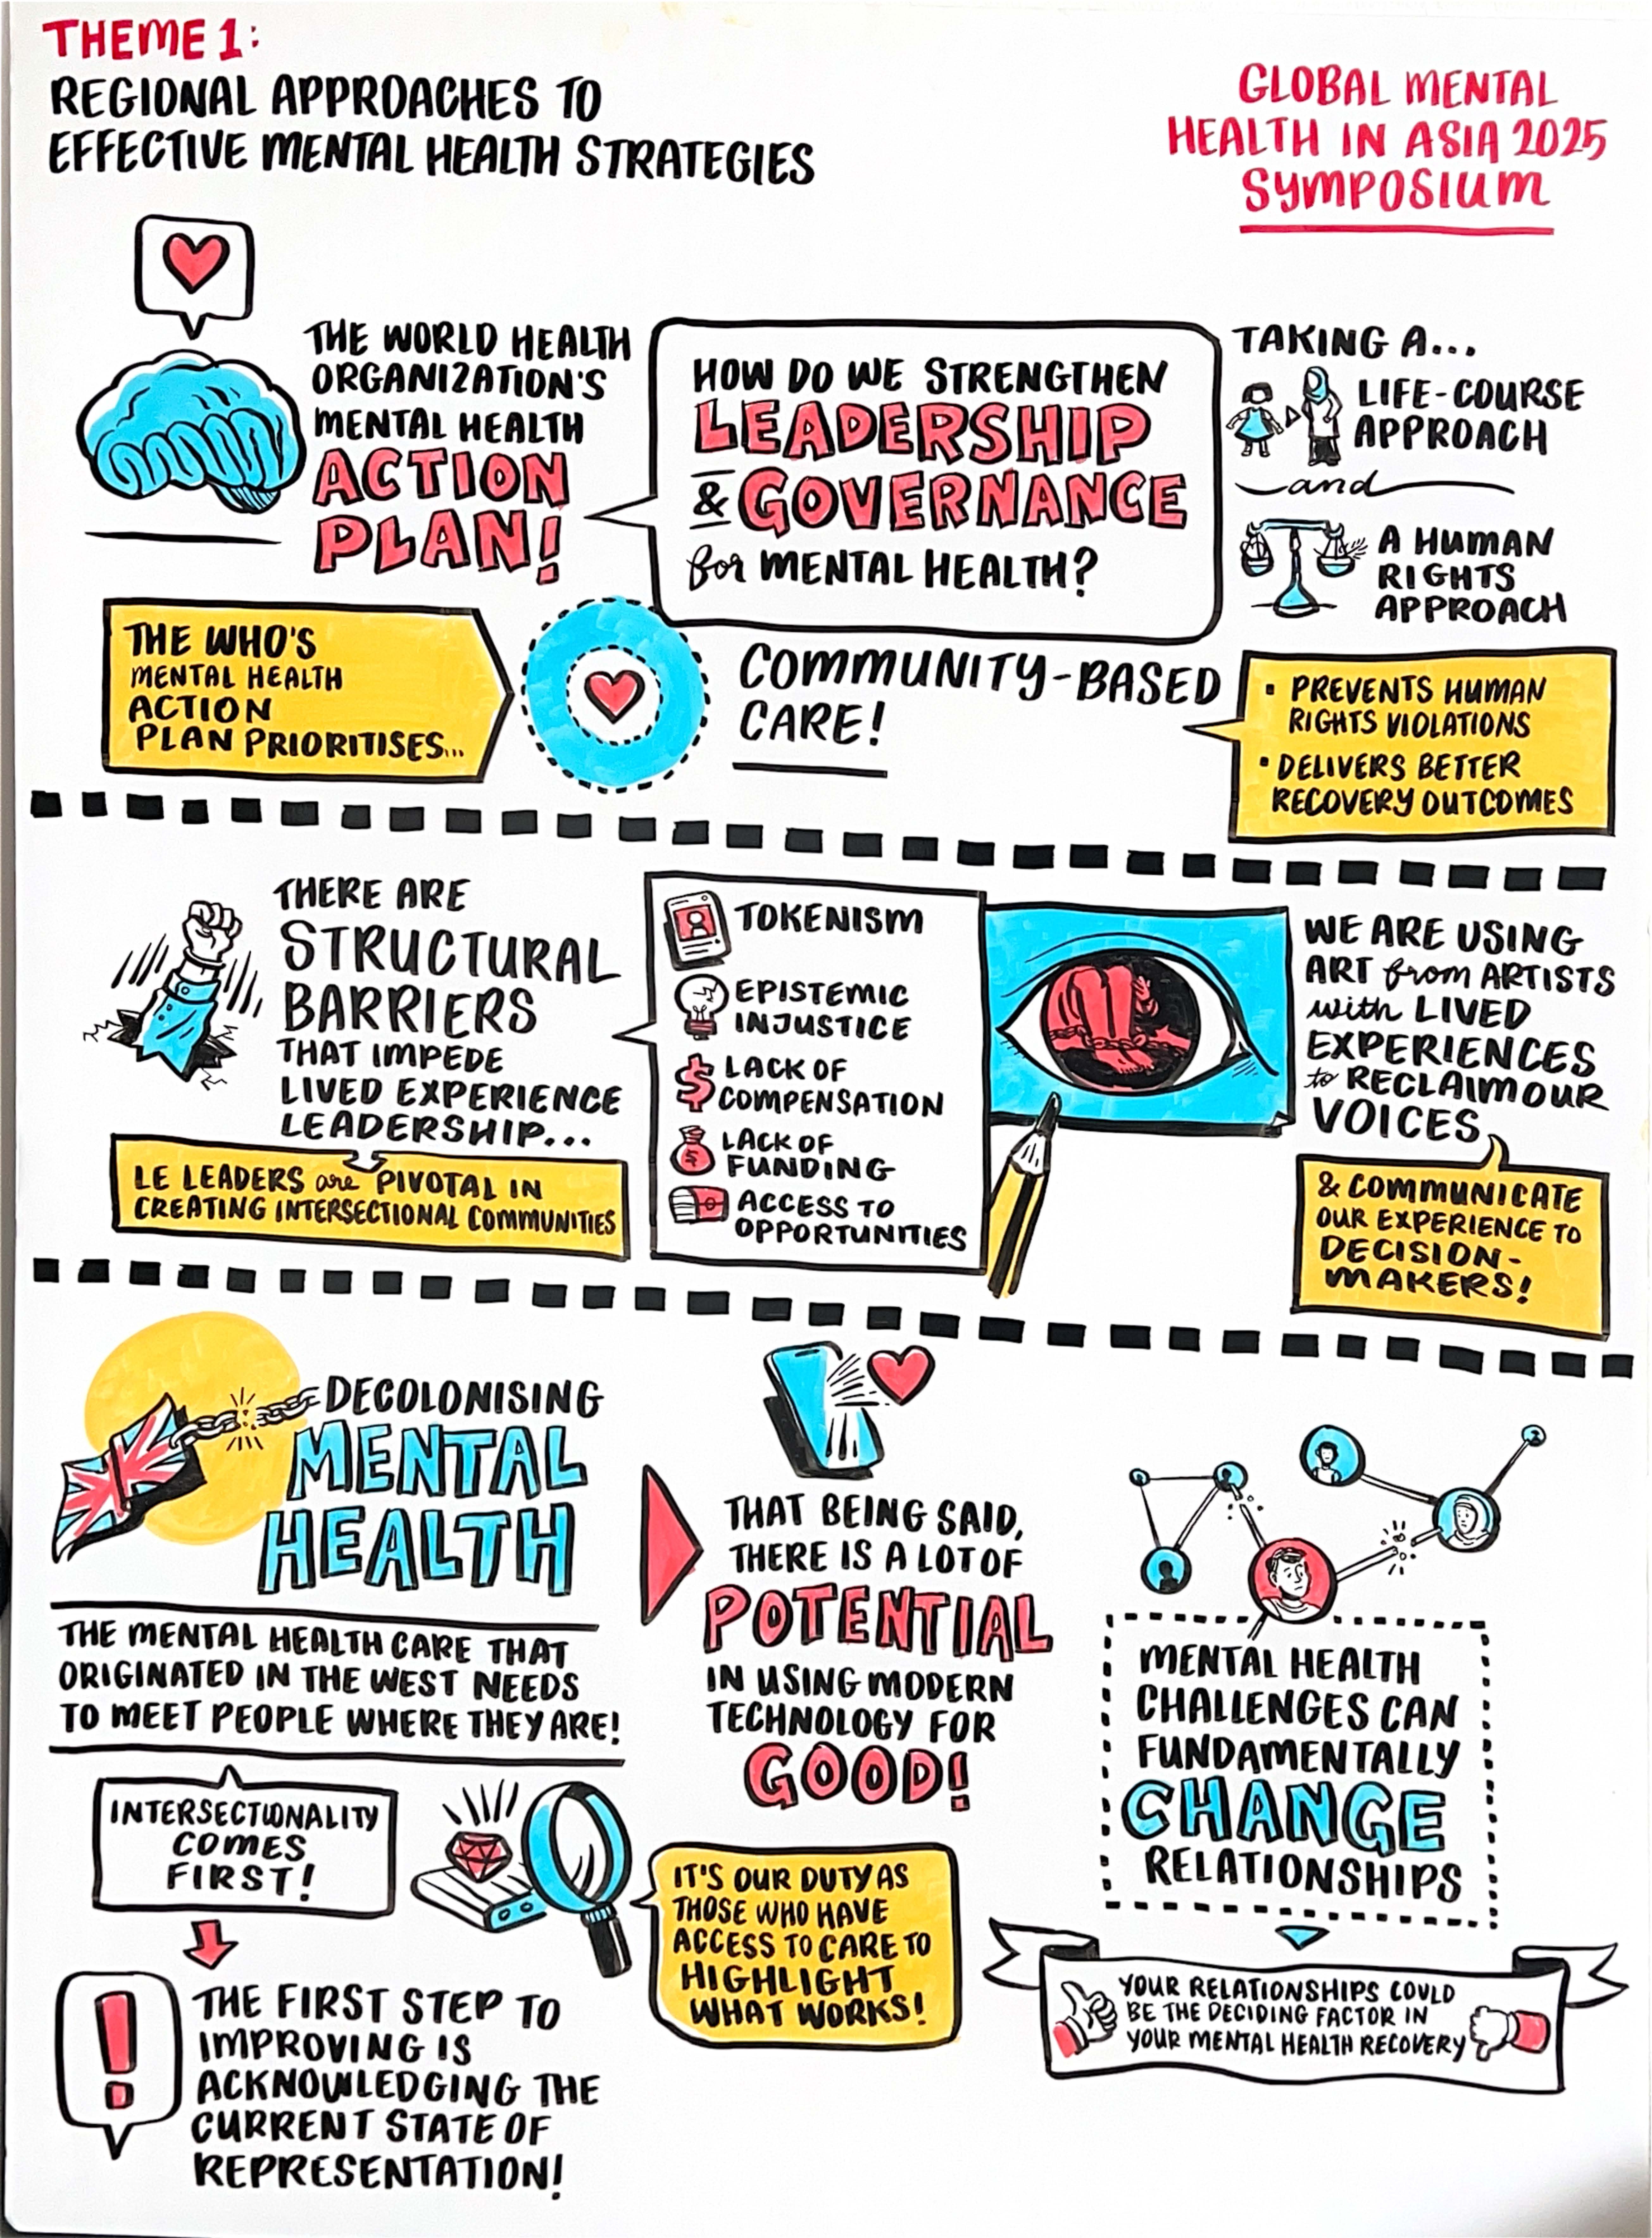 THEME 1:
REGIONAL APPROACHES TO
EFFECTIVE MENTAL HEALTH STRATEGIES
GLOBAL MENTAL
HEALTH IN ASIA 2025
SYMPOSIUM
THE WORLD HEALTH
ORGANIZATION'S
MENTAL HEALTH
ACTION
PLAN!
HOW DO WE STRENGTHEN
LEADERSHIP
& GOVERNANCE
for MENTAL HEALTH?
TAKING A...
LIFE-COURSE
APPROACH
and
A HUMAN
RIGHTS
APPROACH
THE WHO'S
MENTAL HEALTH
ACTION
PLAN PRIORITISES...
COMMUNITY-BASED
CARE!
• PREVENTS HUMAN
RIGHTS VIOLATIONS
• DELIVERS BETTER
RECOVERY OUTCOMES
THERE ARE
STRUCTURAL
BARRIERS
THAT IMPEDE
LIVED EXPERIENCE
LEADERSHIP...
LE LEADERS are PIVOTAL IN
CREATING INTERSECTIONAL COMMUNITIES
TOKENISM
EPISTEMIC
INJUSTICE
$ LACK OF
COMPENSATION
$ LACK OF
FUNDING
ACCESS TO
OPPORTUNITIES
WE ARE USING
ART from ARTISTS
with LIVED
EXPERIENCES
to RECLAIM OUR
VOICES
& COMMUNICATE
OUR EXPERIENCE TO
DECISION-
MAKERS!
DECOLONISING
MENTAL
HEALTH
THE MENTAL HEALTH CARE THAT
ORIGINATED IN THE WEST NEEDS
TO MEET PEOPLE WHERE THEY ARE!
INTERSECTIONALITY
COMES
FIRST!
! THE FIRST STEP TO
IMPROVING IS
ACKNOWLEDGING THE
CURRENT STATE OF
REPRESENTATION!
THAT BEING SAID,
THERE IS A LOT OF
POTENTIAL
IN USING MODERN
TECHNOLOGY FOR
GOOD!
IT'S OUR DUTY AS
THOSE WHO HAVE
ACCESS TO CARE TO
HIGHLIGHT
WHAT WORKS!
MENTAL HEALTH
CHALLENGES CAN
FUNDAMENTALLY
CHANGE
RELATIONSHIPS
YOUR RELATIONSHIPS COULD
BE THE DECIDING FACTOR IN
YOUR MENTAL HEALTH RECOVERY